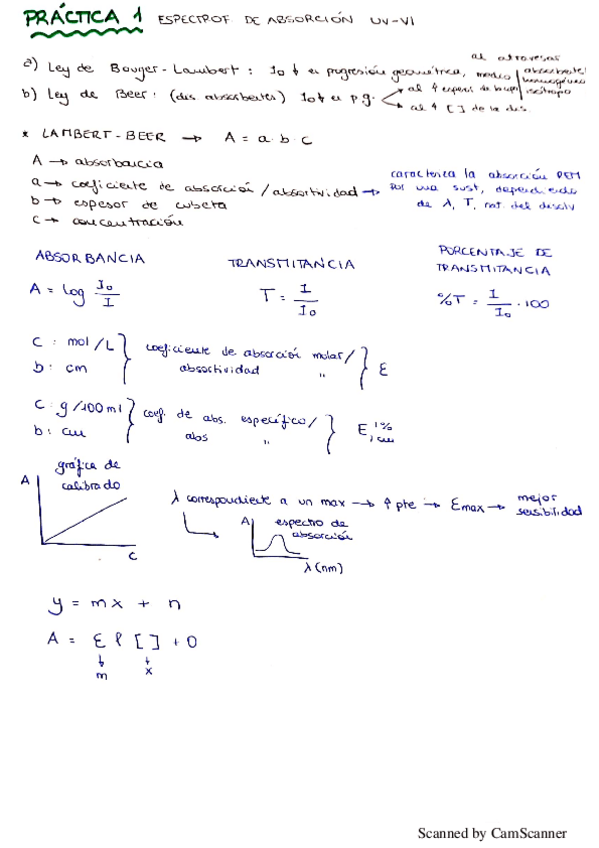 PRÁCTICA 1 ESPECTROF. DE ABSORCIÓN UV-VI
a) Ley de Bouger-Lambert: I0 ↓ en progresión geométrica, al atravesar medio absorbente homogéneo isótropo
b) Ley de Beer: (dis absorbentes) I0 ↓ en p.g. al ↑ espesor de la capa
al ↑ [ ] de la dis.
* LAMBERT-BEER → A = a·b·c
A → absorbancia
a → coeficiente de absorción / absortividad → caracteriza la absorción REM
por una sust, dependiendo
de λ, T, nat. del disolv
b → espesor de cubeta
c → concentración
ABSORBANCIA TRANSMITANCIA PORCENTAJE DE TRANSMITANCIA
A = log I0/I T = I/I0 %T = I/I0 · 100
C: mol/L
b: cm
coeficiente de absorción molar/
absortividad "
ε
C: g/100 ml
b: cm
coef. de abs. específico/
abs "
E 1% 1cm
gráfica de
calibrado
A
C
λ correspondiente a un max → ↑ pte → εmax → mejor
sensibilidad
A espectro de
absorción
λ (nm)
y = mx + n
A = ε l [ ] + 0
m x
Scanned by CamScanner